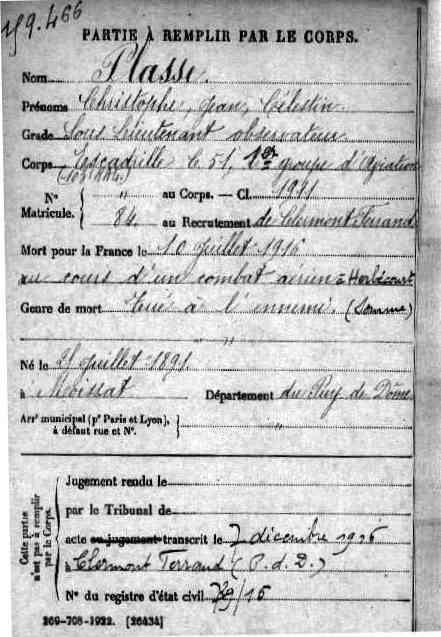 159.466
PARTIE À REMPLIR PAR LE CORPS.
Nom Plasse.
Prénoms Christophe, Jean, Célestin.
Grade Sous Lieutenant observateur
Corps Escadrille C 51, 1er groupe d'Aviation
N° " au Corps. — Cl. 1911
Matricule. 84. au Recrutement de Clermont Ferrand
Mort pour la France le 10 Juillet 1916
au cours d'un combat aérien = Herbécourt
Genre de mort Tué à l'ennemi. (Somme)
" "
Né le Juillet 1891.
à Moissat Département du Puy de Dôme
Arrt municipal (pr Paris et Lyon), à défaut rue et N°. "
Cette partie n'est pas à remplir par le Corps.
Jugement rendu le
par le Tribunal de
acte ou jugement transcrit le 7 décembre 1916
à Clermont Ferrand (P. d. D.)
N° du registre d'état civil /16
269-708-1922. [26434]